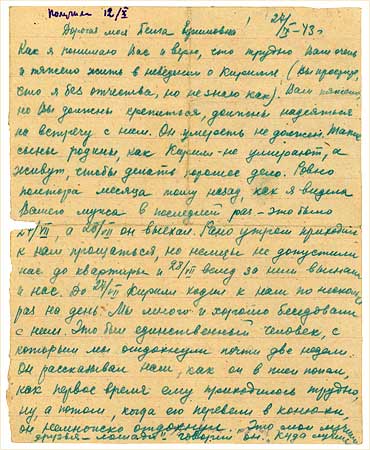 получил 12/X
24/IX-43 г.
Дорогая моя Бетта Ефимовна!
Как я понимаю Вас и верю, что трудно Вам очень
и тяжело жить в неведении о Кирилле, (Вы простите,
что я без отчества, но не знаю как). Вам тяжело,
но Вы должны крепиться, должны надеяться
на встречу с ним. Он умереть не должен. Такие
сыны родины, как Кирилл - не умирают, а
живут, чтобы делать хорошее дело. Ровно
полтора месяца тому назад, как я видела
Вашего мужа в последний раз - это было
27/VII, а 28/VII он выехал. Рано утром приходил
к нам прощаться, но немцы не допустили
нас до квартиры и 28/VII вслед за ним выгнали
и нас. До 27/VII Кирилл ходил к нам по нескольку
раз на день. Мы много и хорошо беседовали
с ним. Это был единственный человек, с
которым мы отдохнули почти две недели.
Он рассказывал нам, как он в плен попал,
как первое время ему приходилось трудно,
ну а потом, когда его перевели в конюхи,
он немножко отдохнул. "Это мои лучшие
друзья - лошади" говорил он. Куда лучше